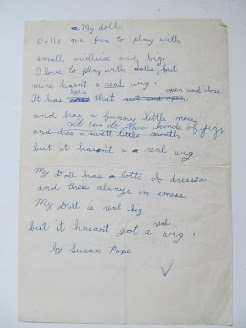 My doll.
Dolls are fun to play with
small midlsise and big.
I love to play with dolls, but
mine hasnt a real wig.
It has eyes that open and close
and has a funny little nose
she can do two kinds of jigs
and has a swett little mouth
but it hasnt a real wig
My Doll has a lotts of dresses
and there always in amess
My Doll is real big
but it hasent got a real wig.
by Susan Pope